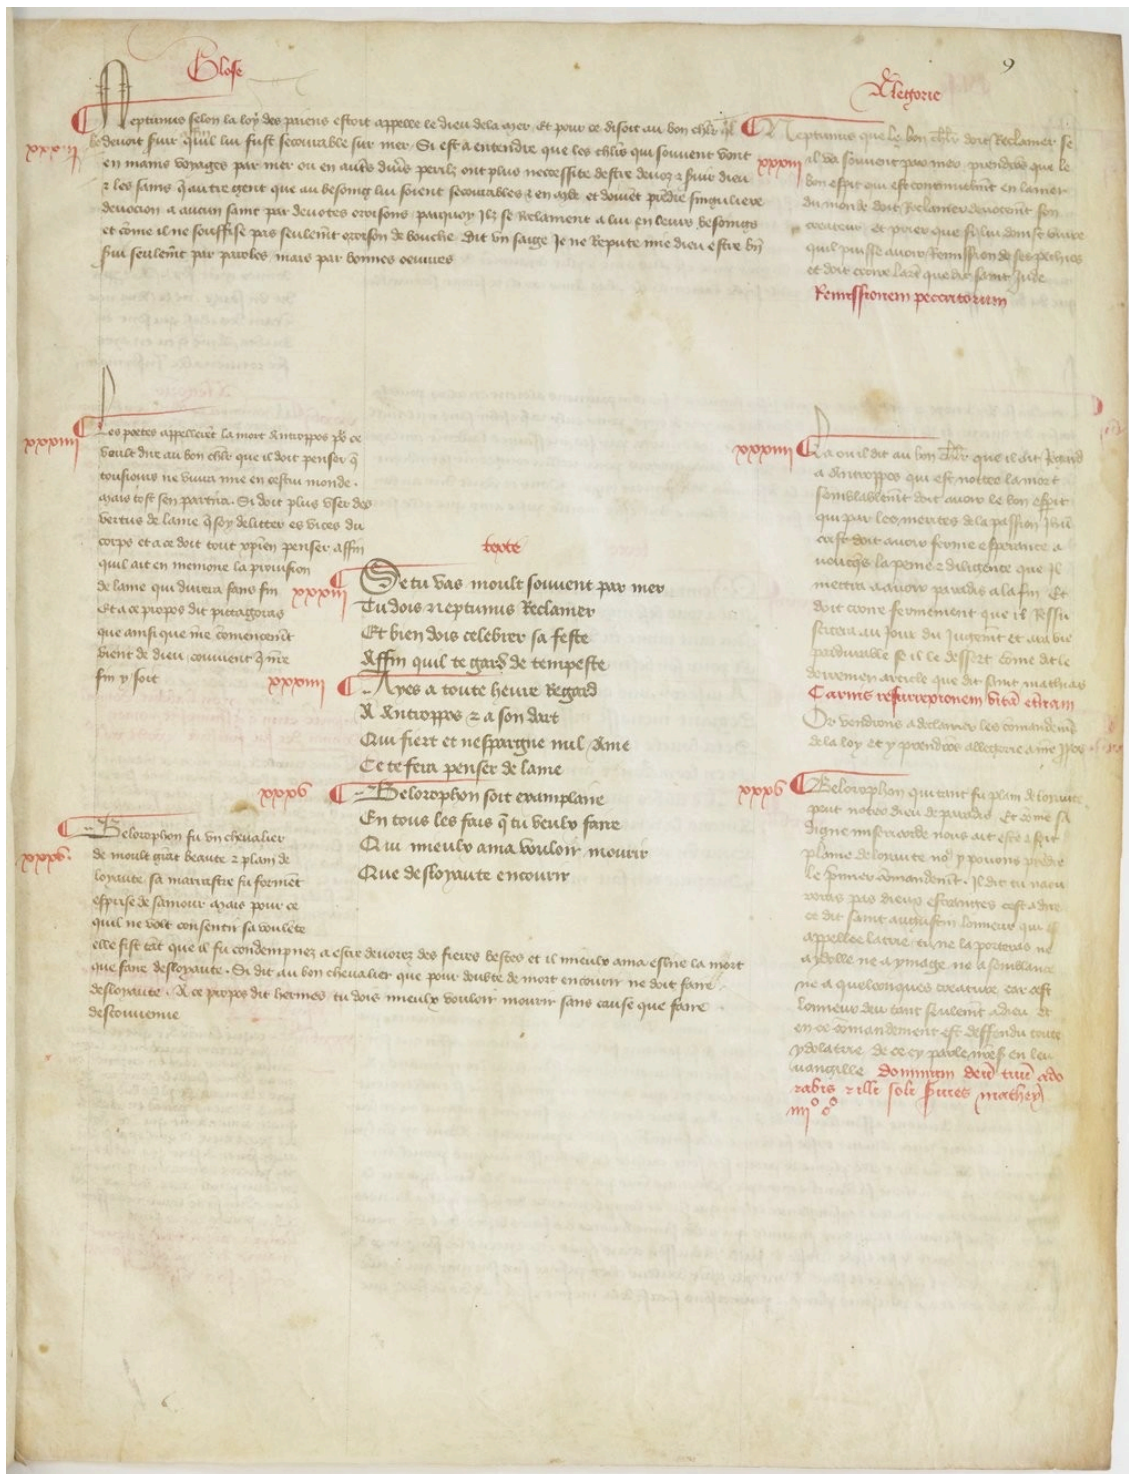 9
Glose
Neptunus selon la loy des paiens estoit appelle le dieu de la mer Et pour ce disoit au bon chlr q̄l
le devoit suir quil lui fust secourable sur mer. Si est a entendre que les chlrs qui souvent vont
xxxiii
en mains voyages par mer ou en autrs divs perilz ont plus necessite destre devoz ⁊ suir dieu
⁊ les sains q̄ autre gent que au besoing lui soient secourables ⁊ en ayde et doivēt prēdre singuliere
devocion a aucun saint par devotes oroisons parquoy ilz se Reclament a lui en leurs besoings
et cōme il ne souffise pas seulemt oroison de bouche dit un saige Je ne Repute mie dieu estre bn̄
sui seulemt par paroles mais par bonnes oeuvres
Alegorie
Neptunus que le bon chlr doit Reclamer se
xxxiii
il va souvent par mer prendrōs que le
bon espit qui est continuelmt en la mer
du monde doit Reclamer devotemt son
createur et prier que si lui doinse vivre
quil puisse avoir Remission de ses pechies
et doit croire lart que dit saint Jude
Remissionem peccatorum
xxxiiii
Les poetes appellerēt la mort Antroppos po ce
voult dire au bon chlr que il doit penser q̄
tousiours ne vivra mie en cestui monde.
Mais tost sen partira. Si doit plus user des
vertus de lame q̄ soy delitter es vices du
corps et a ce doit tout xpien penser affin
quil ait en memoire la provision
de lame qui durera sans fin
Et a ce propos dit pittagoras
que ainsi que nre comencemt
vient de dieu couvient q̄ nre
fin y soit
xxxiiii
La ou il dit au bon chlr que il ait Regard
a Antroppos qui est nottee la mort
semblablemt doit avoir le bon espit
qui par les merites de la passion Jhu
crist doit avoir ferme esperance a
vecques la peine ⁊ diligence que il
mettra a avoir paradis a la fin Et
doit croire fermement que il Ressu
scitera au Jour du Jugemt et aura vie
pardurable se il le dessert cōme dit le
derrenier article que dit saint mathias
Carnis resurrexionem vitā eternam
Or vendrons a declairer les comandemts
de la loy et y prendrōs allegorie a nre ppos
texte
xxxiii
Se tu vas moult souvent par mer
Tu dois Neptunus Reclamer
Et bien dois celebrer sa feste
Affin quil te gard de tempeste
xxxiiii
Ayes a toute heure Regard
A Antroppos ⁊ a son dart
Qui fiert et nespargne nul Ame
Ce te fera penser de lame
xxxv
Belorophon soit examplaire
En tous les fais q̄ tu veulx faire
Qui mieulx ama vouloir mourir
Que desloyaute encourir
xxxv.
Belorophon fu un chevalier
de moult grāt beaute ⁊ plain de
loyaute. sa marrastre fu formēt
esprise de samour mais pour ce
quil ne volt consentir sa voulēte
elle fist tāt que il fu condempnez a estre devorez des fieres bestes et il mieulx ama eslire la mort
que faire desloyaute. Si dit au bon chevalier que pour doubte de mort encourir ne doit faire
desloyaute. A ce propos dit hermes tu dois mieulx vouloir mourir sans cause que faire
desconvenue
xxxv
Belorophon qui tant fu plain de loyaute
peut noter dieu de paradis Et cōme sa
digne misericorde nous ait este ⁊ soit
plaine de loyaute no9 y pouons prēdre
le premier comandemt. Il dit tu naou
reras pas dieux estranges cest a dire
ce dit saint augustin lonneur qui est
appellee latrie tu ne la porteras ne
a ydolle ne a ymage ne a semblance
ne a quelconques creature car cest
lonneur deu tant seulemt a dieu et
en ce comandement est deffendu toute
ydolatrie de ce cy parle nres en leu
vangille dominum deū tuū ado
rabis ⁊ illi soli servies mathey
iiii° c°